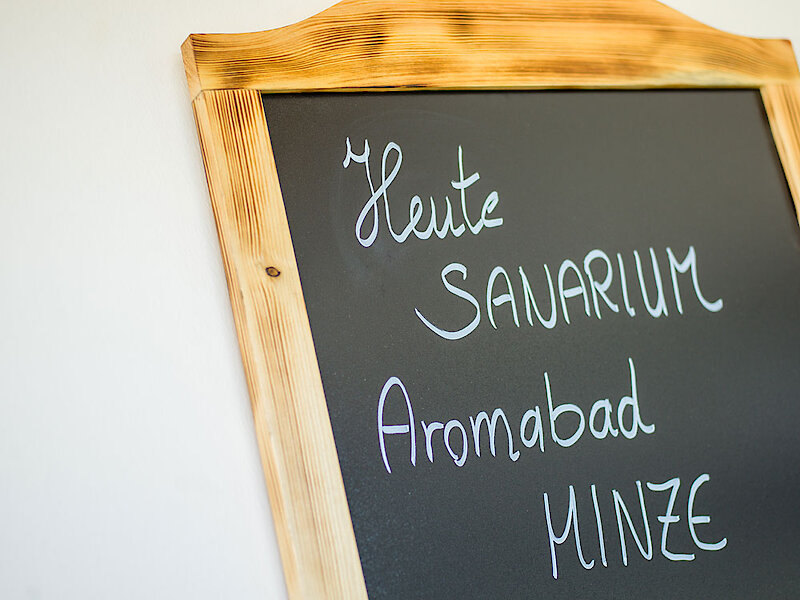 Heute
SANARIUM
Aromabad
MINZE